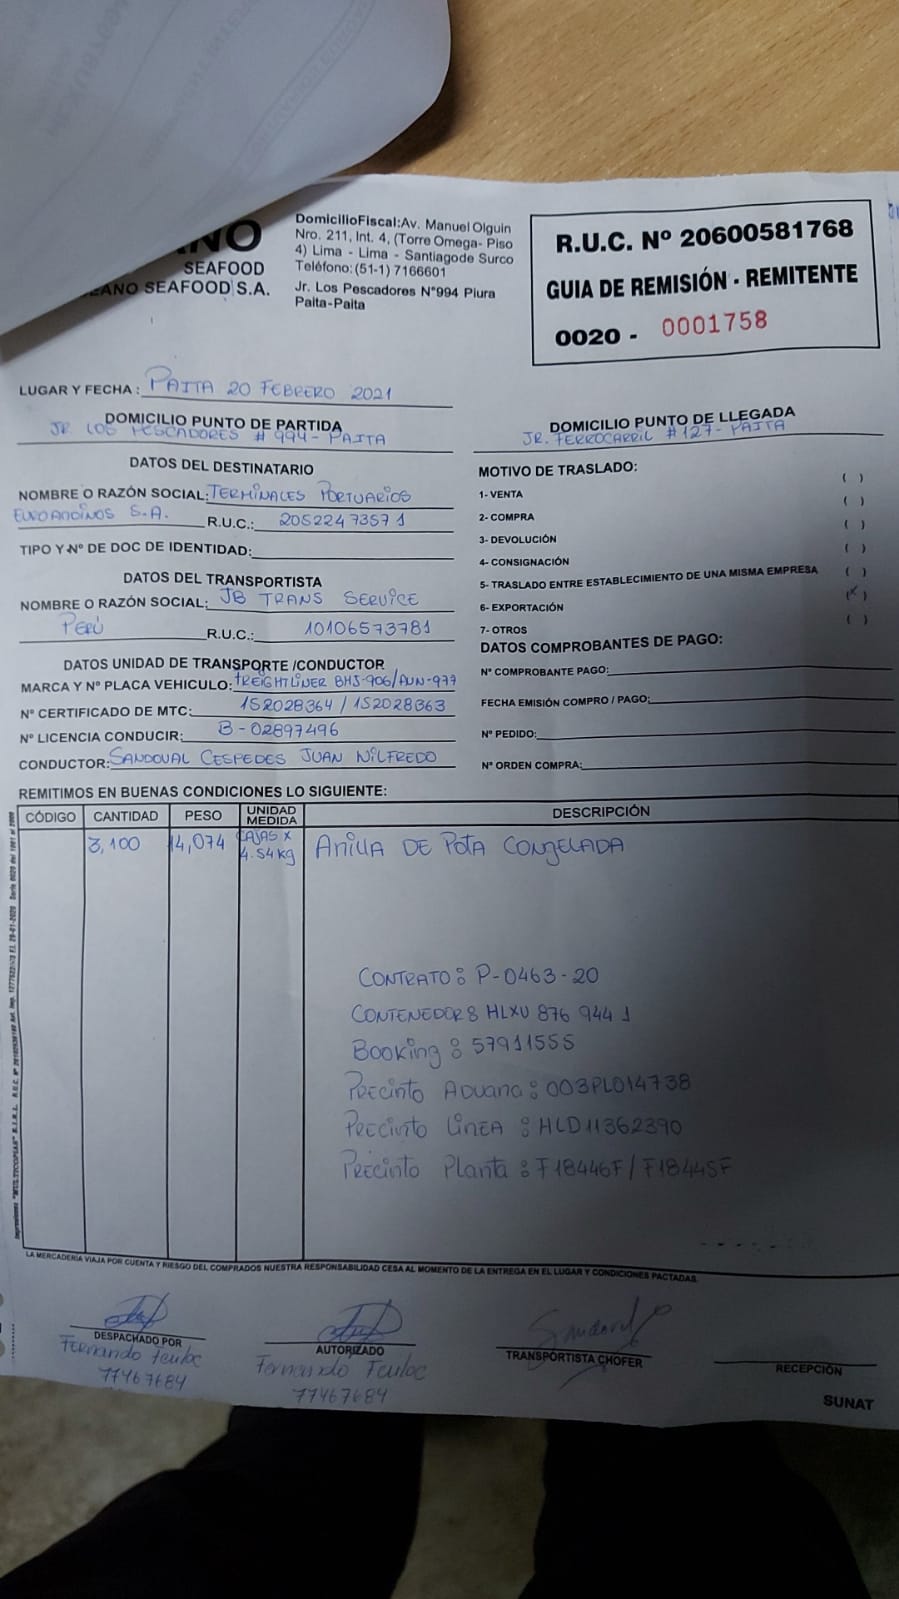 SEAFOOD
EANO SEAFOOD S.A.
DomicilioFiscal:Av. Manuel Olguin
Nro. 211, Int. 4, (Torre Omega- Piso
4) Lima - Lima - Santiagode Surco
Teléfono:(51-1) 7166601
Jr. Los Pescadores N°994 Piura
Paita-Paita
R.U.C. Nº 20600581768
GUIA DE REMISIÓN - REMITENTE
0020 - 0001758
LUGAR Y FECHA : PAITA 20 FEBRERO 2021
DOMICILIO PUNTO DE PARTIDA
JR. LOS PESCADORES # 994- PAITA
DOMICILIO PUNTO DE LLEGADA
JR. FERROCARRIL #127- PAITA
DATOS DEL DESTINATARIO
NOMBRE O RAZÓN SOCIAL: TERMINALES PORTUARIOS
EUROANDINOS S.A. R.U.C.: 20522473571
TIPO Y Nº DE DOC DE IDENTIDAD:
DATOS DEL TRANSPORTISTA
NOMBRE O RAZÓN SOCIAL: JB TRANS SERVICE
PERÚ R.U.C.: 10106573781
DATOS UNIDAD DE TRANSPORTE /CONDUCTOR
MARCA Y Nº PLACA VEHICULO: FREIGHTLINER BHJ-906/AUN-977
Nº CERTIFICADO DE MTC: 152028364 / 152028363
Nº LICENCIA CONDUCIR: B-02897496
CONDUCTOR: SANDOVAL CESPEDES JUAN WILFREDO
MOTIVO DE TRASLADO:
1- VENTA ( )
2- COMPRA ( )
3- DEVOLUCIÓN ( )
4- CONSIGNACIÓN ( )
5- TRASLADO ENTRE ESTABLECIMIENTO DE UNA MISMA EMPRESA ( )
6- EXPORTACIÓN (X)
7- OTROS ( )
DATOS COMPROBANTES DE PAGO:
Nº COMPROBANTE PAGO:
FECHA EMISIÓN COMPRO / PAGO:
Nº PEDIDO:
Nº ORDEN COMPRA:
REMITIMOS EN BUENAS CONDICIONES LO SIGUIENTE:
CÓDIGO CANTIDAD PESO UNIDAD MEDIDA DESCRIPCIÓN
3,100 14,074 CAJAS X 4.54kg ANILLA DE POTA CONGELADA
CONTRATO: P-0463-20
CONTENEDOR: HLXU 876 944 1
Booking: 57911555
PRECINTO ADUANA: 003PL014738
PRECINTO LINEA: HLD11362390
PRECINTO Planta: F18446F/F18445F
LA MERCADERÍA VIAJA POR CUENTA Y RIESGO DEL COMPRADOS NUESTRA RESPONSABILIDAD CESA AL MOMENTO DE LA ENTREGA EN EL LUGAR Y CONDICIONES PACTADAS.
DESPACHADO POR
Fernando
77467684
AUTORIZADO
Fernando
77467684
TRANSPORTISTA CHOFER
RECEPCIÓN
SUNAT